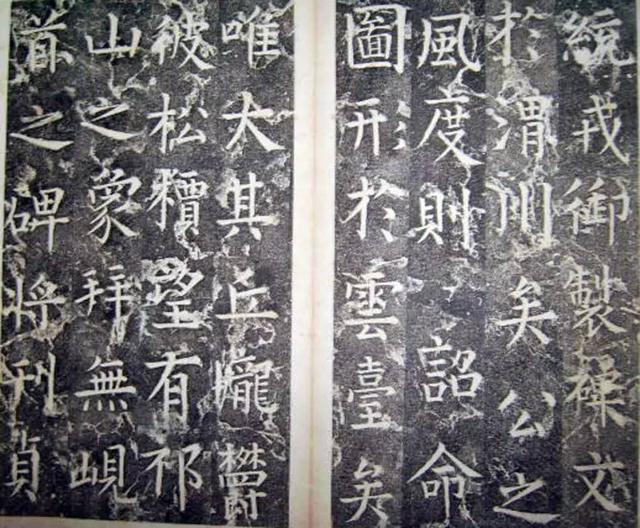 統戎御製文
於渭川矣公之
風度則詔命
圖形於雲臺矣
唯大其丘壠欝
彼松檟望有祁
山之象拜無峴
首之碑將刊貞